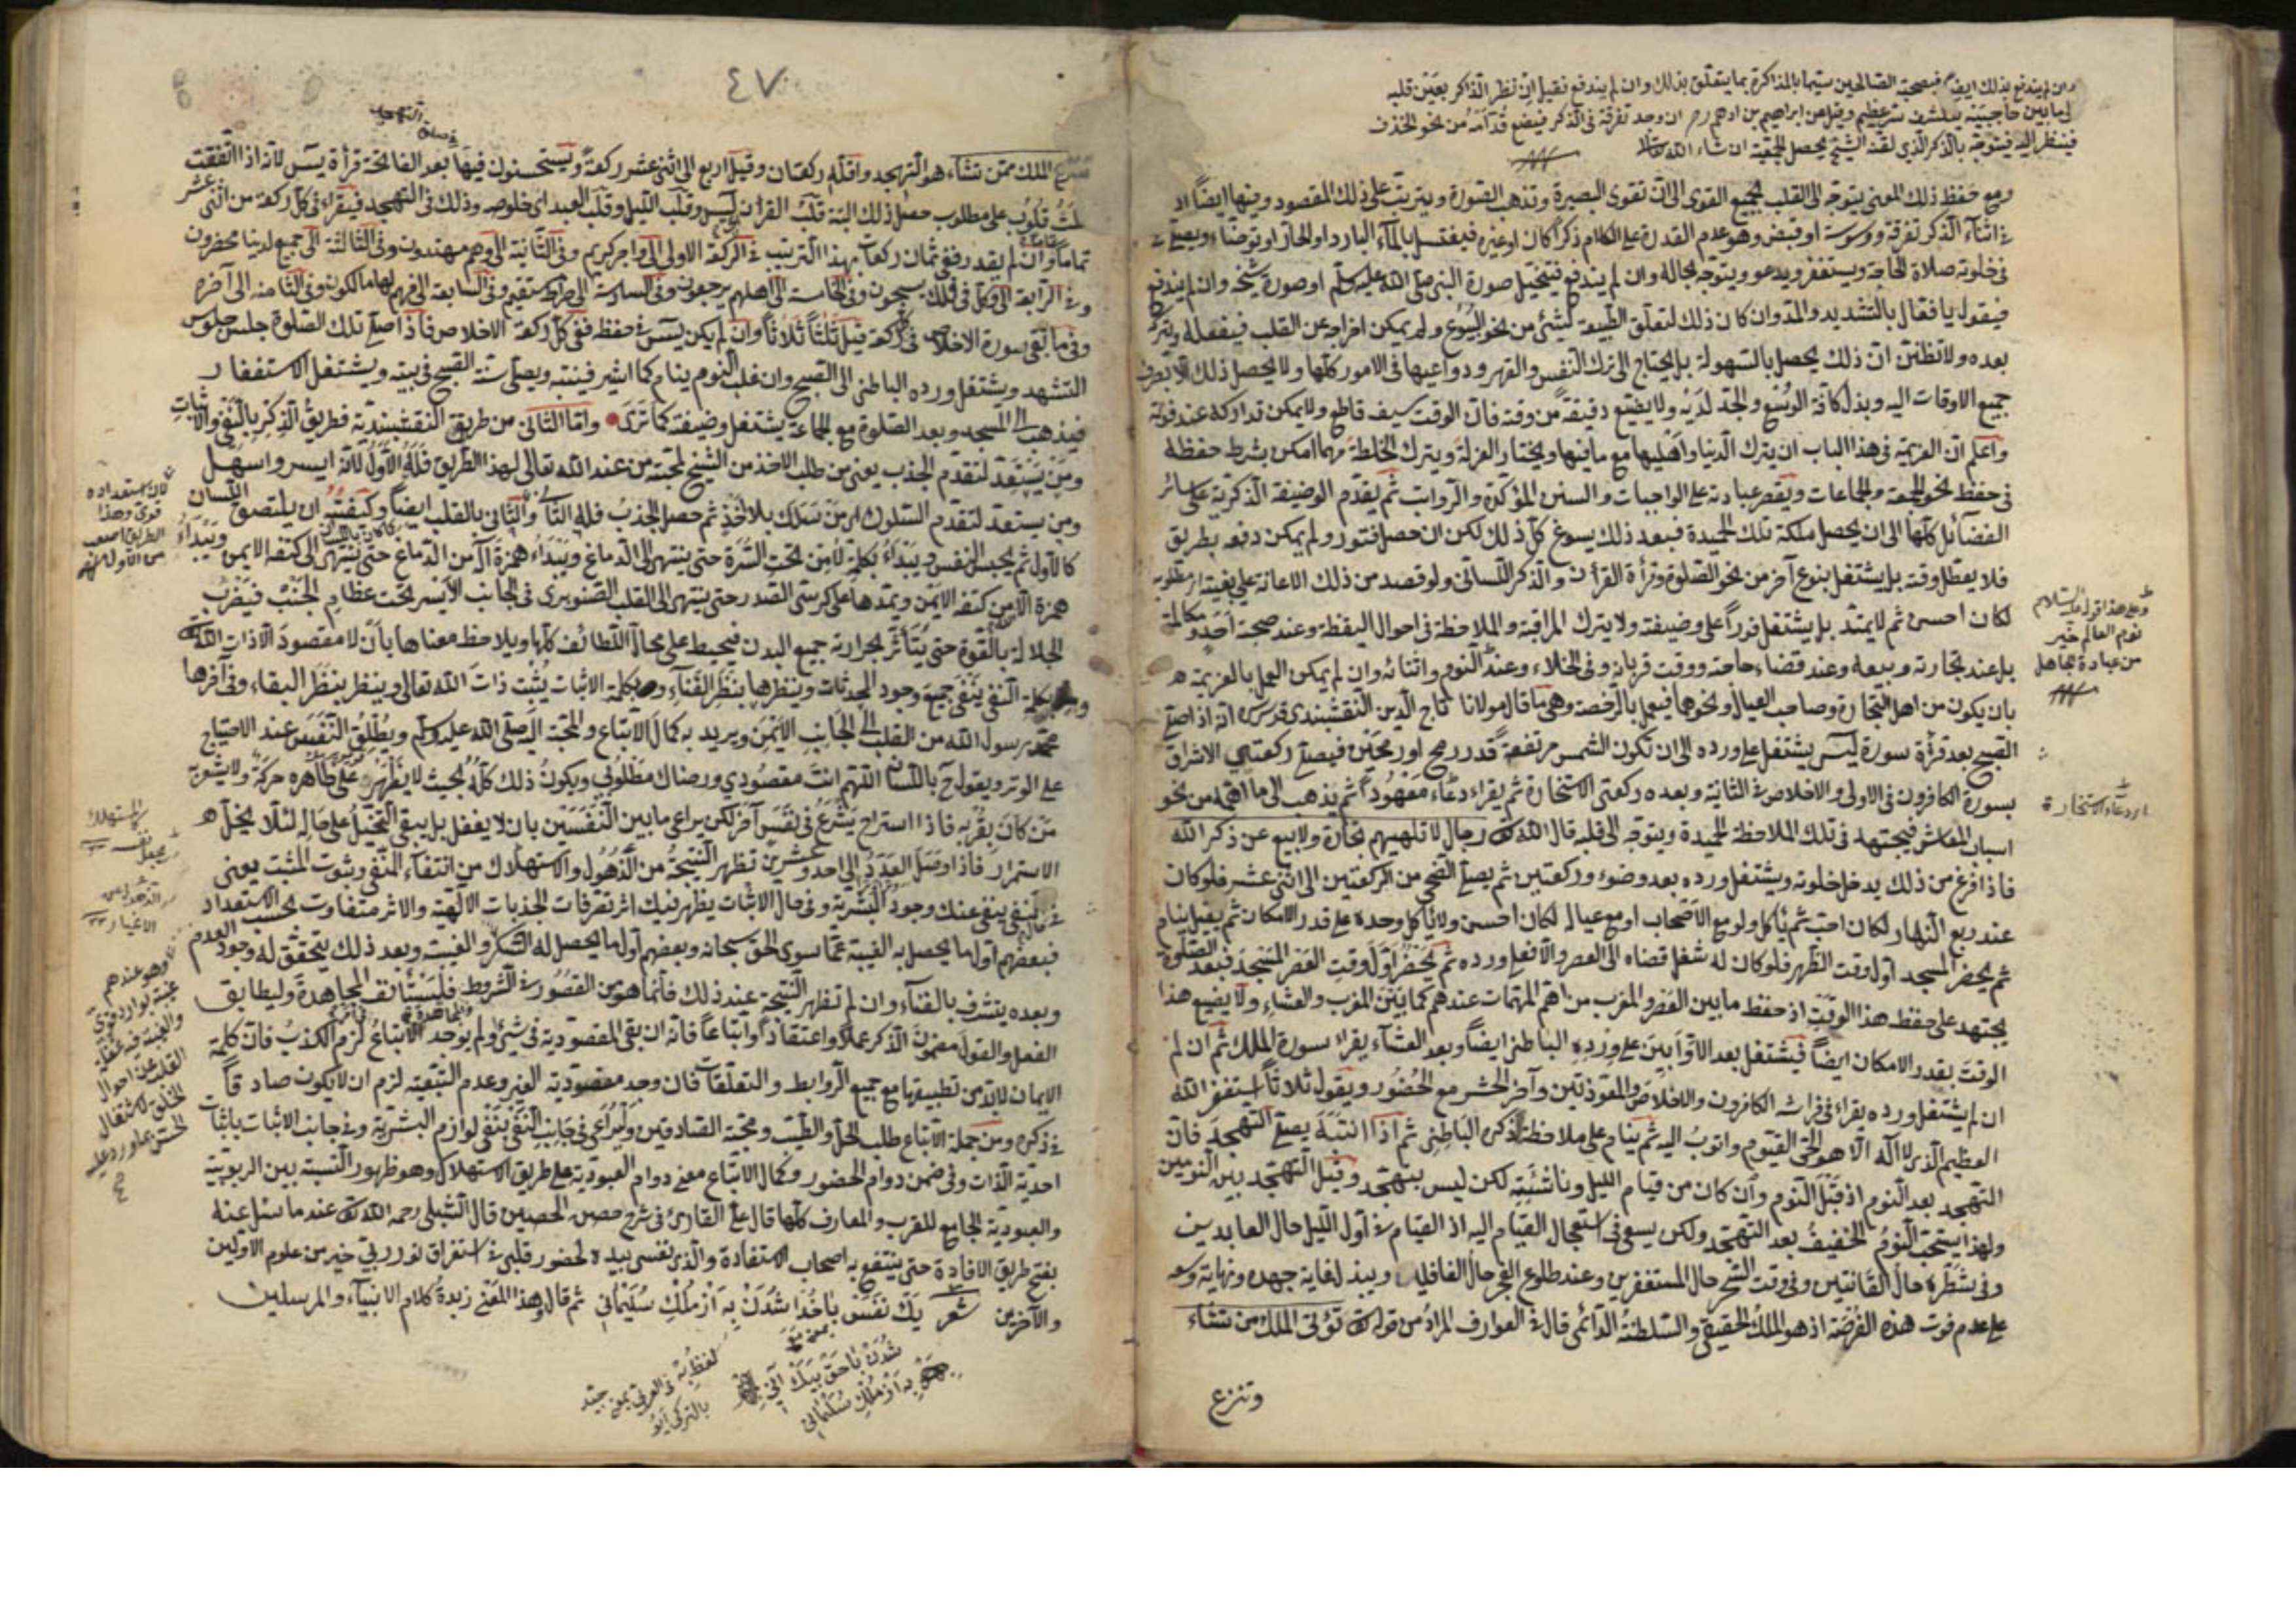 وان لم يندفع بذلك ايضا فبصحبة الصالحين سيما بالمذاكرة بما يتعلق بذلك وان لم يندفع فقيل ان نظر الذاكر بعين قلبه
الى ما بين حاجبيه ينكشف سر عظيم ونقل عن ابراهيم بن ادهم ان وجد تفرقة فى الذكر فيضع قدامه من نحو الخذف
فينظر اليه فيتوجه بالذكر الذى لقنه الشيخ يحصل الجمعية ان شاء الله تعالى
ومع حفظ ذلك المعنى يتوجه الى القلب بجميع القوى الى ان تقوى البصيرة وتذهب الصورة ويترتب على ذلك المقصود ومنها ايضا اذ
فى اثناء الذكر تفرقة ووسوسة او قبض وهو عدم القدرة على الكلام ذكرا كان او غيره فيغتسل بالماء البارد او الحار او توضاء ويصلى
فى خلوته صلاة الحاجة ويستغفر ويدعو ويتوجه بحاله وان لم يندفع فيتخيل صورة النبى صلى الله عليه وسلم او صورة شيخه وان لم يندفع
فيقول يا فعال بالتشديد والمد وان كان ذلك لتعلق الطبيعة لشئ من نحو البيوع ولم يمكن اخراجه عن القلب فيفعله ويترك
بعده ولا تظنن ان ذلك يحصل بالسهولة بل يحتاج الى ترك النفس والقهر ودواعيها فى الامور كلها ولا يحصل ذلك الا بصرف
جميع الاوقات اليه وبذل كافة الوسع والجد لديه ولا يضيع دقيقة من وقته فان الوقت سيف قاطع ولا يمكن تداركه عند فوته
واعلم ان العزيمة فى هذا الباب ان يترك الدنيا واهليها مع ما فيها ويختار العزلة ويترك الخلطة مهما امكن بشرط حفظه
فى حفظ نحو الجمعة والجماعات ويقصر عبادته على الواجبات والسنن المؤكدة والرواتب ثم يقدم الوضيفة الذكرية على سائر
الفضائل كلها الى ان يحصل ملكة تلك الحميدة فبعد ذلك يسوغ كل ذلك لكن ان حصل فتور ولم يمكن دفعه بطريق
فلا يعطل وقته بل يشتغل بنوع آخر من نحو الصلوة وقرأة القرأن والذكر اللسانى ولو قصد من ذلك الاعانة على بغيته
لكان احسن ثم لا يمتد بل يشتغل فورا على وضيفته ولا يترك المراقبة والملاحظة فى احوال اليقظة وعند صحبة احد ومكالمة
بل عند تجارته وبيعه وعند قضاء حاجته ووقت قربانه وفى الخلاء وعند النوم واثنائه وان لم يمكن العمل بالعزيمة
بان يكون من اهل التجارة وصاحب العيال ونحوهما فيعمل بالرخصة وهى ما قال مولانا تاج الدين النقشبندى قدس سره انه اذا صلى
الصبح بعد قرأة سورة ليس يشتغل على ورده الى ان تكون الشمس مرتفعة قدر رمح او رمحين فيصلى ركعتى الاشراق
بسورة الكافرون فى الاولى والاخلاص فى الثانية وبعده ركعتى الاستخارة ثم يقراء دعاء معهودا ثم يذهب الى ما اهمه من نحو
اسباب المعاش فيجتهد فى تلك الملاحظة الحميدة ويتوجه الى قلبه قال الله تعالى رجال لا تلهيهم تجارة ولا بيع عن ذكر الله
فاذا فرغ من ذلك يدخل خلوته ويشتغل ورده بعد وضوء وركعتين ثم يصلى الضحى من الركعتين الى اثنى عشر فلو كان
عند ربع النهار لكان احب ثم يأكل ولو مع الاصحاب او مع عياله لكان احسن ولا يأكل وحده على قدر الامكان ثم يقيل ينام
ثم يحضر المسجد اول وقت الظهر فلو كان له شغل قضاه الى العصر والا فعلى ورده ثم يحضر اول وقت العصر المسجد فبعد الصلوة
يجتهد على حفظ هذا الوقت اذ حفظ ما بين العصر والمغرب من اهم المهمات عندهم كما بين المغرب والعشاء ولا يضيع هذا
الوقت بقدر الامكان ايضا فيشتغل بعد الاوابين على ورده الباطنى ايضا وبعد العشاء يقراء سورة الملك ثم ان لم
ان لم يشتغل ورده يقراء فى فراشه الكافرون والاخلاص والمعوذتين وآخر الحشر مع الحضور ويقول ثلاثا استغفر الله
العظيم الذى لا اله الا هو الحى القيوم واتوب اليه ثم ينام على ملاحظة ذكره الباطنى ثم اذا انتبه يصلى التهجد فان
التهجد بعد النوم اذ قبل النوم وان كان من قيام الليل وناشئته لكن ليس بتهجد وقيل التهجد بين النومين
ولهذا يستحب النوم الخفيف بعد التهجد ولكن يسعى فى استعجال القيام اليه اذ القيام فى اول الليل حال العابدين
وفى شطره حال القانتين وفى وقت السحر حال المستغفرين وعند طلوع الفجر حال الغافلين ويبذل غاية جهده ونهاية وسعه
على عدم فوت هذه الفرضة اذ هو الملك الحقيقى والسلطنة الدائمى قال فى العوارف المراد من قوله تعالى تؤتى الملك من تشاء
وتنزع
وعلى هذا قوله عليه السلام
نوم العالم خير
من عبادة الجاهل
اى دعاء الاستخارة
٤٧
وتنزع الملك ممن تشاء هو التهجد واقله ركعتان وقيل اربع الى اثنى عشر ركعة ويستحسنون فيها بعد الفاتحة قرأة يس لانه اذا اتفقت
ثلث قلوب على مطلوب حصل ذلك البتة قلب القرأن يس وقلب الليل وقلب العبد اى خلوصه وذلك فى التهجد فيقراء فى كل ركعة من اثنى عشر
تماما وان لم يقدر ففى ثمان ركعات بهذا الترتيب فى الركعة الاولى الى واجر كريم وفى الثانية الى وهم مهتدون وفى الثالثة الى جميع لدينا محضرون
وفى الرابعة الى وكل فى فلك يسبحون وفى الخامسة الى اهلهم يرجعون وفى السادسة الى صراط مستقيم وفى السابعة الى فهم لها مالكون وفى الثامنة الى آخره
وفى ما بقى سورة الاخلاص فى كل ركعة قيل ثلثا ثلاثا وان لم يكن يس فى حفظه ففى كل ركعة الاخلاص فاذا صلى تلك الصلوة جلس جلوس
التشهد ويشتغل ورده الباطنى الى الصبح وان غلب النوم ينام كما اشير فينتبه ويصلى سنة الصبح فى بيته ويشتغل الاستغفار
فيذهب الى المسجد وبعد الصلوة مع الجماعة يشتغل وضيفته كما ترى واما الثانى من طريق النقشبندية فطريق الذكر بالنفى والاثبات
ومن يستعد لتقدم الجذب يعنى من طلب الاخذ من الشيخ لمحبة من عند الله تعالى لهذا الطريق فله الاول لانه ايسر واسهل
ومن يستعد لتقدم السلوك اى من سلك بلا اخذ ثم حصل الجذب فله الثانى والثانى بالقلب ايضا وكيفيته ان يلتصق اللسان
كالاول ثم يحبس النفس ويبتداء بكلمة لا من تحت السرة حتى ينتهى الى الدماغ ويبتداء همزة اله من الدماغ حتى ينتهى الى كتفه الايمن ويبتداء
همزة الا من كتفه الايمن ويمدها على كرسى الصدر حتى ينتهى الى القلب الصنوبرى فى الجانب الايسر تحت عظام الجنب فيضرب
الجلالة بالقوة حتى يتأثر بحرارته جميع البدن فيحيط على محال اللطائف كلها ويلاحظ معناها بان لا مقصود الا ذات الله تعالى
وبكلمة النفى ينفى جميع وجود المحدثات وينظرها بنظر الفناء وبكلمة الاثبات يثبت ذات الله تعالى وينظر بنظر البقاء وفى آخرها
محمد رسول الله من القلب الى الجانب الايمن ويريد به كمال الاتباع والمحبة اليه صلى الله عليه وسلم ويطلق النفس عند الاحتياج
على الوتر ويقول باللسان اللهم انت مقصودى ورضاك مطلوبى ويكون ذلك كله بحيث لا يظهر على ظاهره حركة ولا يشعر به
من كان بقربه فاذا استراح يشرع فى نفس آخر لكن يراعى ما بين النفسين بان لا يغفل بل يبقى التخيل على حاله لئلا يخل
الاستمرار فاذا وصل العدد الى احد وعشرين تظهر النتيجة من الذهول والاستهلاك من انتفاء المنفى وثبوت المثبت يعنى
ينتفى عنك وجود البشرية وفى حال الاثبات يظهر فيك اثر تصرفات الجذبات الالهية والاثر متفاوت بحسب الاستعداد
فبعضهم اول ما يحصل به الغيبة عما سوى الحق سبحانه وبعضهم اول ما يحصل له السكر والغيبة وبعد ذلك يتحقق له وجود العدم
وبعده يتشرف بالفناء وان لم تظهر النتيجة عند ذلك فانما هو من القصور فى الشروط فليستأنف المجاهدة وليطابق
الفعل والقول مضمون الذكر عملا واعتقادا واتباعا فانه ان بقى المقصودية فى شئ ولم يوجد الاتباع لزم الكذب فان كلمة
الايمان لا بد من تطبيقها مع جميع الروابط والتعلقات فان وجد مقصودية الغير وعدم التبعية لزم ان لا يكون صادقا
فى ذكره ومن جملة الاتباع طلب الحل والطيب ومحبة الصادقين وليراعى فى جانب النفى بنفى لوازم البشرية وفى جانب الاثبات باثبات
احدية الذات وفى ضمن دوام الحضور وكمال الاتباع معنى دوام العبودية على طريق الاستهلاك وهو ظهور النسبة بين الربوبية
والعبودية الجامع للقرب والمعارف كلها قال على القارى فى شرح حصن الحصين قال الشبلى رحمه الله تعالى عند ما سئل عنه
بفتح طريق الافادة حتى ينتفع به اصحاب الاستفادة والذى نفسى بيده لحضور قلبى فى استغراق نور ربى خير من علوم الاولين
والآخرين شعر يك نفس باخدا شدن به از ملك سليمانى ثم قال وهذا المعنى زبدة كلام الانبياء والمرسلين
لان استعداده
قوى وهذا
الطريق اصعب
من الاول
وهو عندهم
القلب عن احوال
الخلق لاشتغال
الحس بما ورد عليه
به از ملك سليمانى